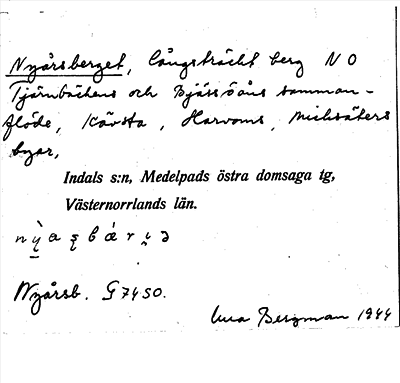 Nyårsberget, långsträckt berg NO
Tjärnbäckens och Bjässåns samman-
flöde, Kävsta, Harvoms,
byar,
Indals s:n, Medelpads östra domsaga tg,
Västernorrlands län.
Nyårsb. G 7450.
Bergman 1944